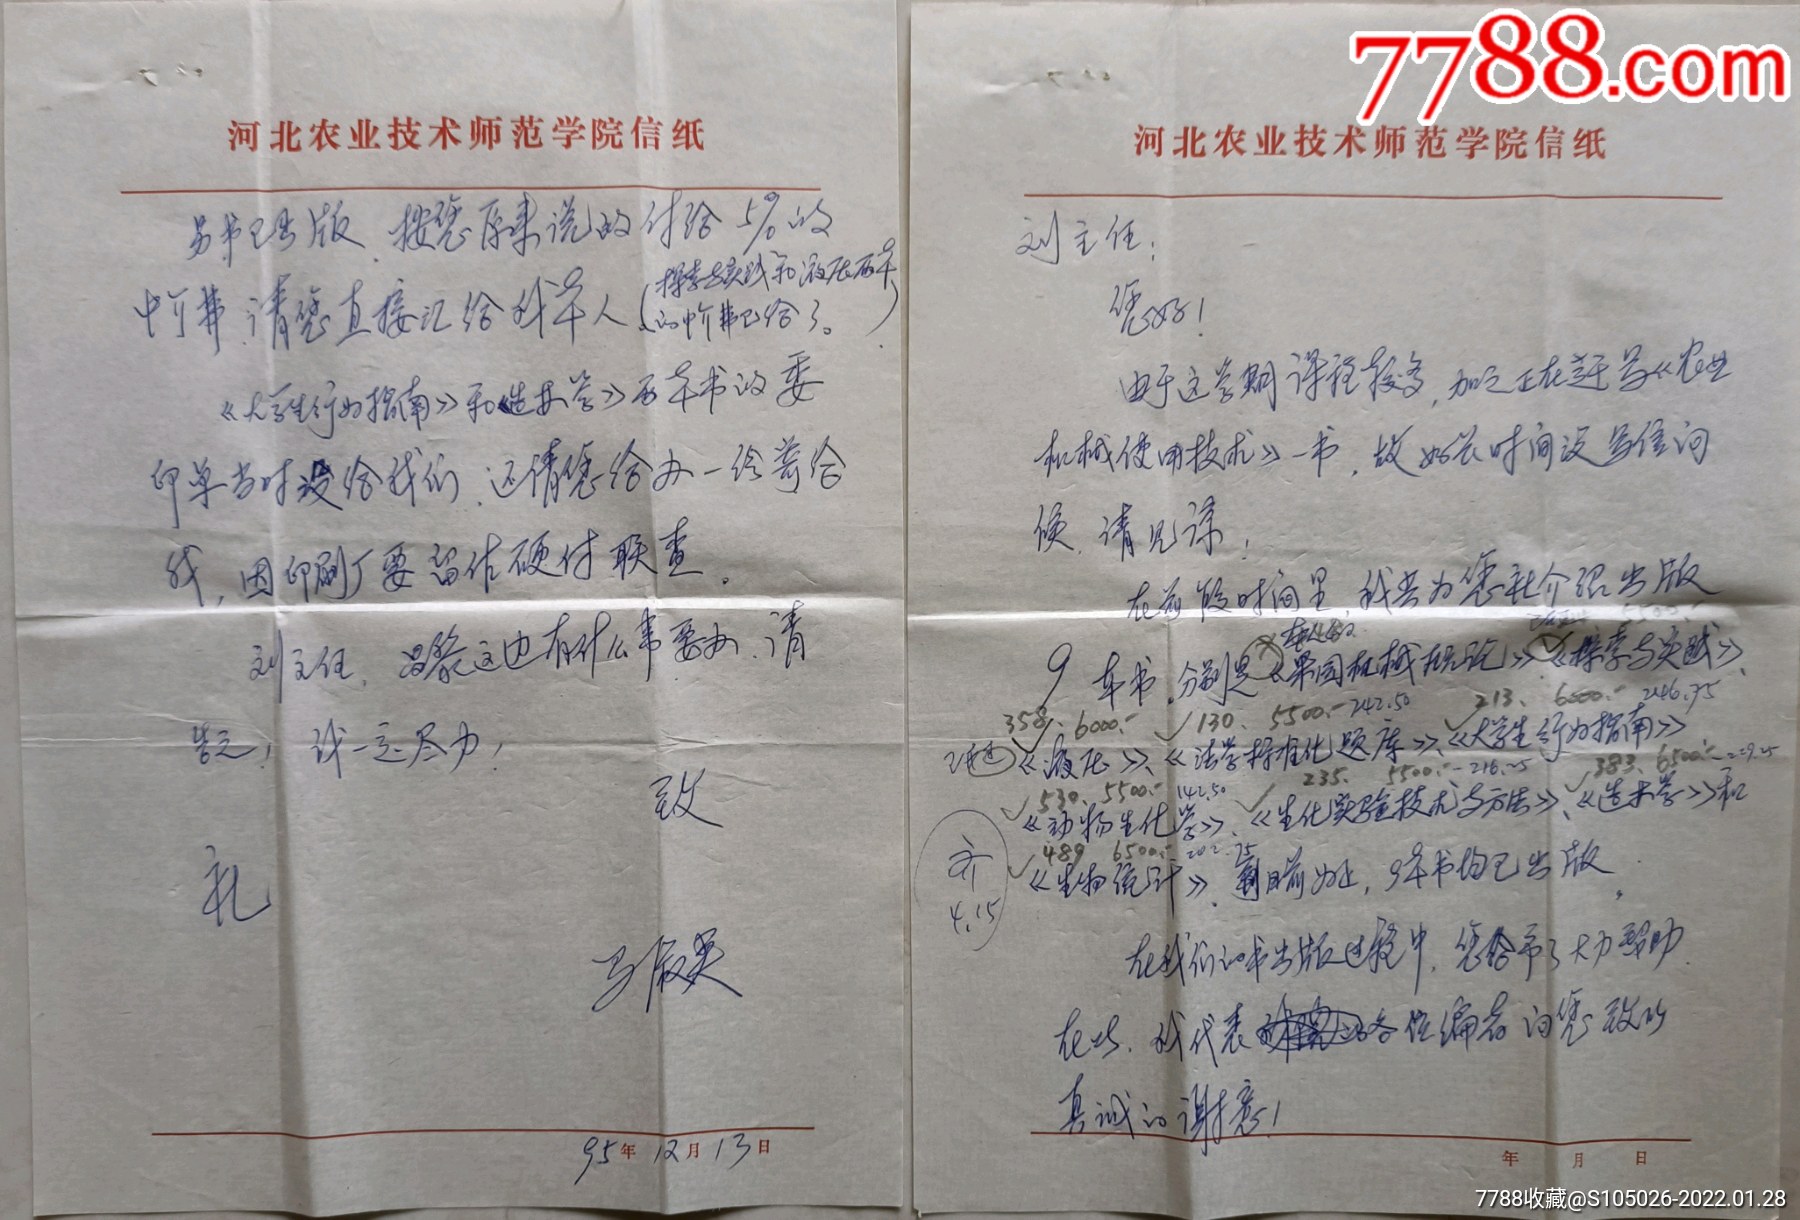 7788.com
河北农业技术师范学院信纸
刘主任：
您好！
由于这学期课程较多，加之正在主写《农业
机械使用技术》一书，故好长时间没写信问
候，请见谅！
在前段时间里，我共为您社介绍出版
9本书，分别是《果园机械概论》、《探索与实践》、
358、6000.- 130、5500.- 242.50 213、6000.- 246.75
《液压》、《法学标准化题库》、《大学生行为指南》
530、5500.- 142.50 235、5500.- 216.25 383、6500.- 229.25
《动物生化学》、《生化实验技术与方法》、《造林学》和
489 6500.- 202.75
《生物统计》。到目前为止，9本书均已出版。
4.15
在我们的书出版过程中，您给予了大力帮助，
在此，我代表各位编者向您致以
真诚的谢意！
年 月 日
河北农业技术师范学院信纸
另书已出版，按您原来说的付给5%的
中介费，请您直接汇给我本人（探索与实践和液压两本
的中介费已给了。）
《大学生行为指南》和《造林学》两本书的委
印单当时没给我们，还请您给办一份寄给
我，因印刷厂要留作硬付联查。
刘主任，昌黎这边有什么事要办，请
告之！我一定尽力！
致
礼
马振英
95年12月13日
7788收藏@S105026-2022.01.28